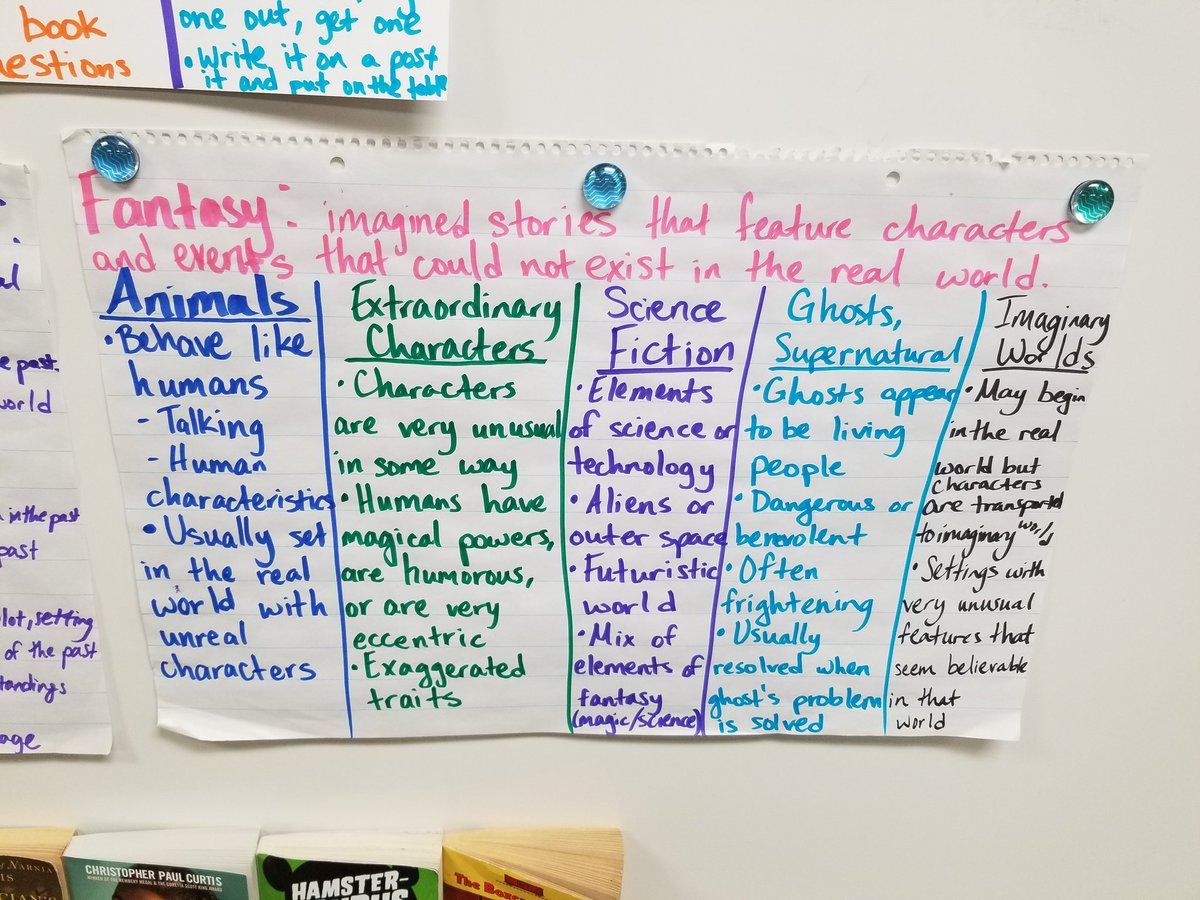 book
one out, get one
• Write it on a post
it and put on the table
Fantasy: imagined stories that feature characters
and events that could not exist in the real world.
Animals
• Behave like
humans
- Talking
- Human
characteristics
• Usually set
in the real
world with
unreal
characters
Extraordinary
Characters
• Characters
are very unusual
in some way
• Humans have
magical powers,
are humorous,
or are very
eccentric
• Exaggerated
traits
Science
Fiction
• Elements
of science or
technology
• Aliens or
outer space
• Futuristic
world
• Mix of
elements of
fantasy
(magic/science)
Ghosts,
Supernatural
• Ghosts appear
to be living
people
• Dangerous or
benevolent
• Often
frightening
• Usually
resolved when
ghost's problem
is solved
Imaginary
Worlds
• May begin
in the real
world but
characters
are transported
to imaginary worlds
• Settings with
very unusual
features that
seem believable
in that
world
past
world
in the past
past
setting
of the past
NARNIA
CHRISTOPHER PAUL CURTIS
WINNER OF THE NEWBERY MEDAL & THE CORETTA SCOTT KING AWARD
HAMSTER-
The